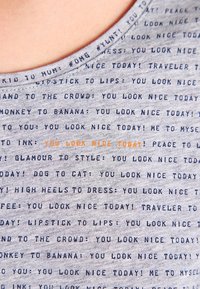 KID TO MUM: #OMG #YLNT! YOU TO
AY! PEACE
ESS: YOU LOOK
LIPSTICK TO LIPS: YOU LOOK NICE
NICE TODAY! TRAVELER T
AND TO THE CROWD: YOU LOOK NICE TODAY!
MONKEY TO BANANA: YOU LOOK NICE TODAY
TO YOU: YOU LOOK NICE TODAY! ME TO MYSEL
TO INK: YOU LOOK NICE TODAY! PEACE TO L
! GLAMOUR TO STYLE: YOU LOOK NICE TODAY!
DAY! DOG TO CAT: YOU LOOK NICE TODAY!
! HIGH HEELS TO DRESS: YOU LOOK NICE
FEE: YOU LOOK NICE TODAY! TRAVELER TO
DAY! LIPSTICK TO LIPS: YOU LOOK NICE
ND TO THE CROWD: YOU LOOK NICE TODAY!
NKEY TO BANANA: YOU LOOK NICE TODAY
YOU: YOU LOOK NICE TODAY! ME TO MYSE
INK: YOU LOOK NICE TODAY! PEACE TO